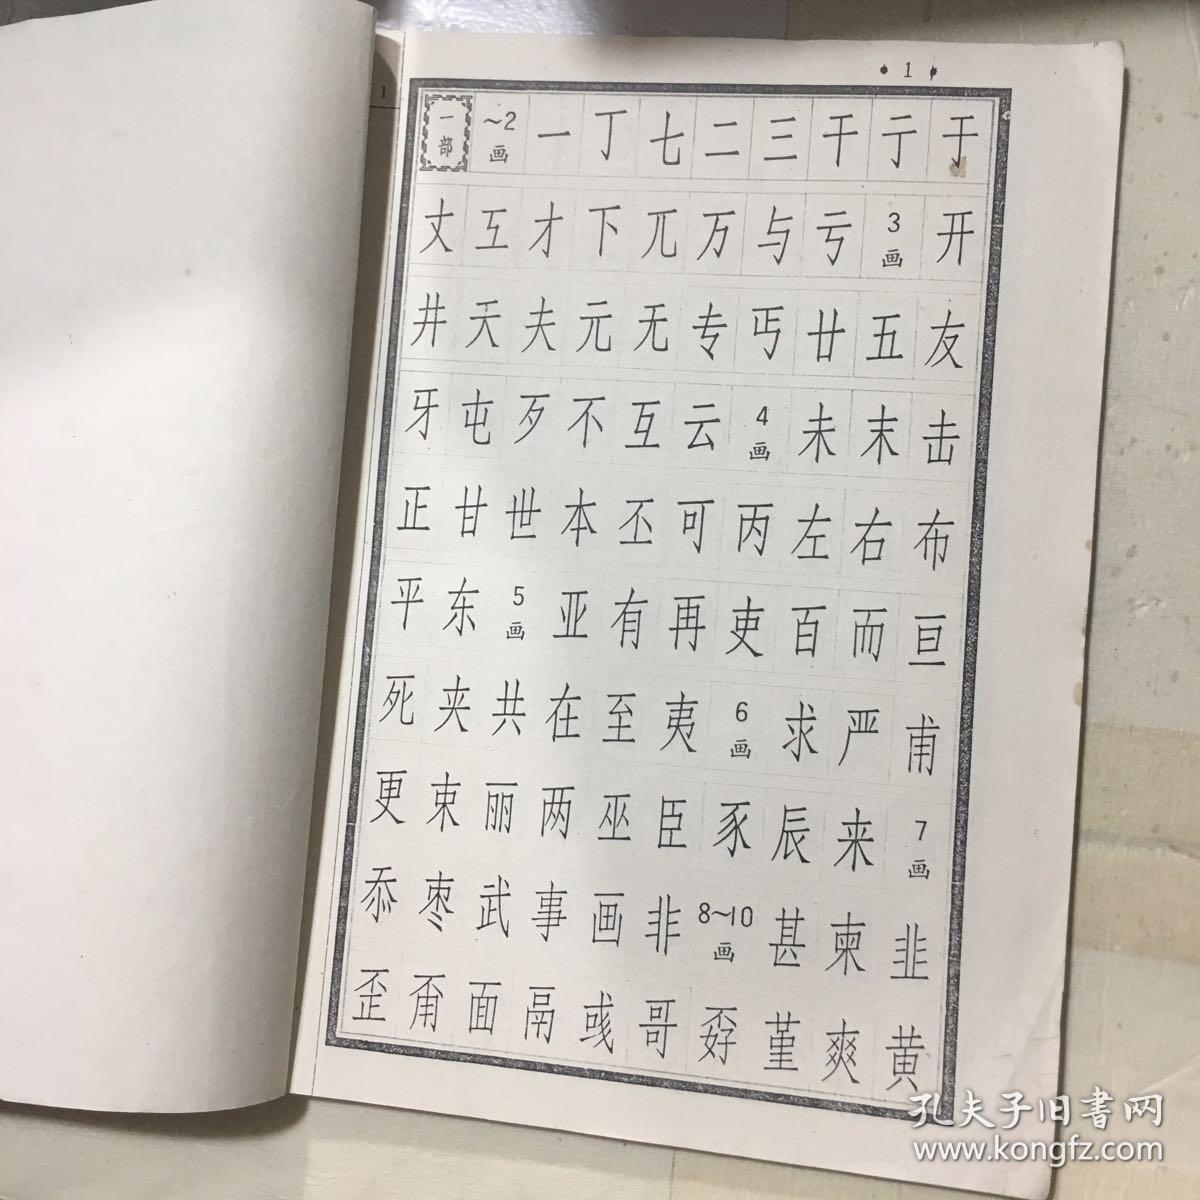 1
· 1 ·
一部 ~2画 一 丁 七 二 三 干 亍 于
丈 互 才 下 兀 万 与 亏 3画 开
井 天 夫 元 无 专 丐 廿 五 友
牙 屯 歹 不 互 云 4画 未 末 击
正 甘 世 本 丕 可 丙 左 右 布
平 东 5画 亚 有 再 吏 百 而 亘
死 夹 共 在 至 夷 6画 求 严 甫
更 束 丽 两 巫 臣 豕 辰 来 7画
忝 枣 武 事 画 非 8~10画 甚 柬 韭
歪 甭 面 鬲 彧 哥 孬 堇 爽 黄
孔夫子旧書网
www.kongfz.com